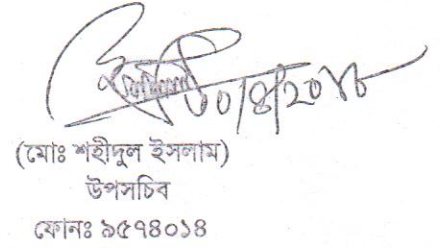 ৩০/৪/২০১৮
(মোঃ শহীদুল ইসলাম)
উপসচিব
ফোনঃ ৯৫৭৪০১৪